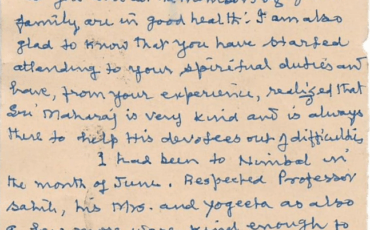 family, are in good health. I am also
glad to know that you have started
attending to your spiritual duties and
have, from your experience, realized that
Sri Maharaj is very kind and is always
there to help His devotees out of difficulties
I had been to Nimbal in
the month of June. Respected Professor
Sahib, his Mrs. and Yogeeta as also
kind enough to